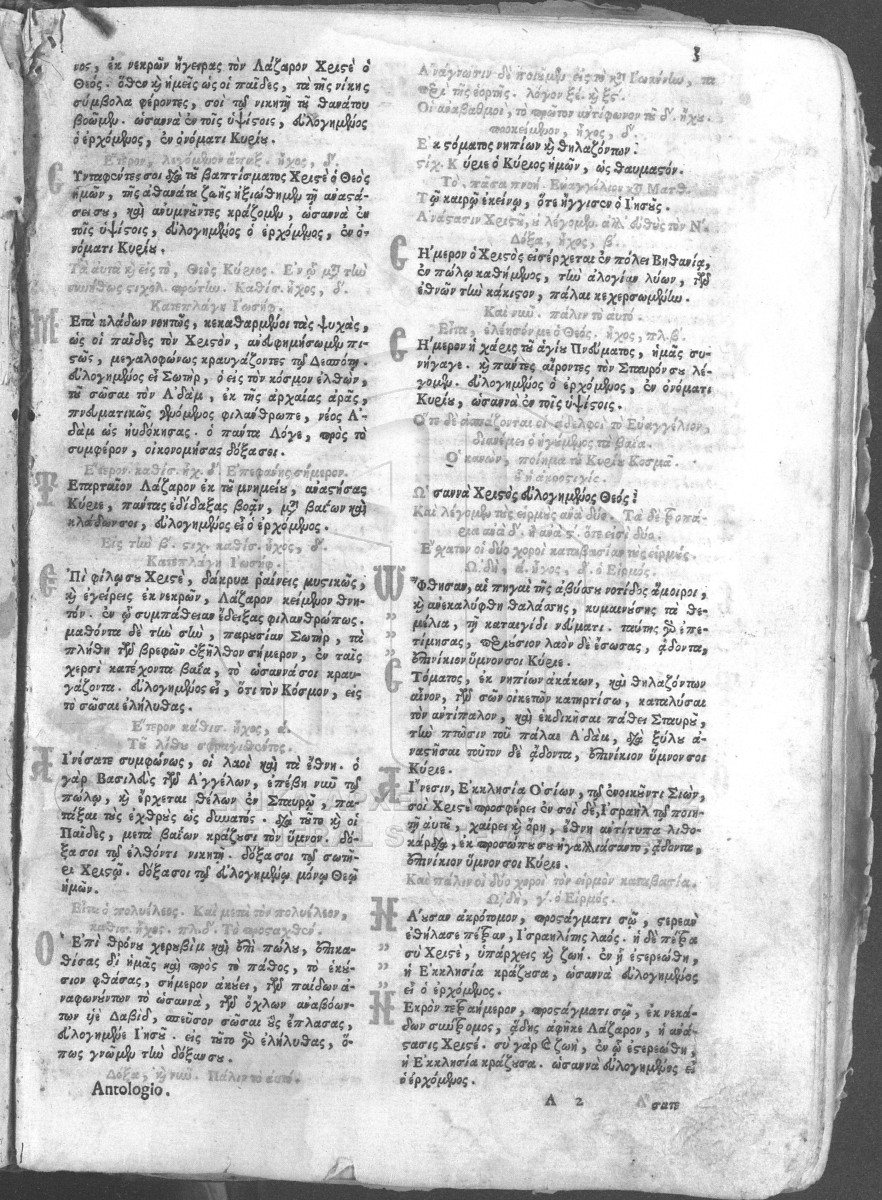 3
νος, ἐκ νεκρῶν ἤγειρας τὸν Λάζαρον Χριστὲ ὁ
Θεός. ὅθεν καὶ ἡμεῖς ὡς οἱ παῖδες, τὰ τῆς νίκης
σύμβολα φέροντες, σοὶ τῷ νικητῇ τοῦ θανάτου
βοῶμεν. ὡσαννὰ ἐν τοῖς ὑψίστοις, εὐλογημένος
ὁ ἐρχόμενος, ἐν ὀνόματι Κυρίου.
Ἕτερον, λεγόμενον ἅπαξ. ἦχος, δ'.
Συνταφέντες σοι διὰ τοῦ βαπτίσματος Χριστὲ ὁ Θεὸς
ἡμῶν, τῆς ἀθανάτου ζωῆς ἠξιώθημεν τῇ ἀναστά-
σει σου, καὶ ἀνυμνοῦντες κράζομεν, ὡσαννὰ ἐν
τοῖς ὑψίστοις, εὐλογημένος ὁ ἐρχόμενος, ἐν ὀ-
νόματι Κυρίου.
Τὰ αὐτὰ καὶ εἰς τὸ, Θεὸς Κύριος. Ἐν ᾧ μετὰ τὴν
συνήθως στιχολ. πρώτην. Κάθισ. ἦχος, δ'.
Κατεπλάγη Ἰωσήφ.
Μετὰ κλάδων νοητῶς, κεκαθαρμένοι τὰς ψυχὰς,
ὡς οἱ παῖδες τὸν Χριστὸν, ἀνευφημήσωμεν πι-
στῶς, μεγαλοφώνως κραυγάζοντες τῷ Δεσπότῃ.
εὐλογημένος εἶ Σωτὴρ, ὁ εἰς τὸν κόσμον ἐλθὼν,
τοῦ σῶσαι τὸν Ἀδὰμ, ἐκ τῆς ἀρχαίας ἀρᾶς,
πνευματικῶς γενόμενος φιλάνθρωπε, νέος Ἀ-
δὰμ ὡς ηὐδόκησας. ὁ πάντα Λόγε, πρὸς τὸ
συμφέρον, οἰκονομήσας δόξα σοι.
Ἕτερον. κάθισ. ἦχ. δ'. Ἐπεφάνης σήμερον.
Τεταρταῖον Λάζαρον ἐκ τοῦ μνημείου, ἀναστήσας
Κύριε, πάντας ἐδίδαξας βοᾷν, μετὰ βαΐων καὶ
κλάδων σοι, εὐλογημένος εἶ ὁ ἐρχόμενος.
Εἰς τὴν β'. στιχ. κάθισ. ἦχος, δ'.
Κατεπλάγη Ἰωσήφ.
Ἐπὶ φίλῳ σου Χριστὲ, δάκρυα ῥαίνεις μυστικῶς,
καὶ ἐγείρεις ἐκ νεκρῶν, Λάζαρον κείμενον θνη-
τόν. ἐν ᾧ συμπάθειαν ἔδειξας φιλανθρώπως.
μαθόντα δὲ τὴν σὴν, παρουσίαν Σωτὴρ, τὰ
πλήθη τῶν βρεφῶν ἐξῆλθον σήμερον, ἐν ταῖς
χερσὶ κατέχοντα βαΐα, τὸ ὡσαννά σοι κραυ-
γάζοντα. εὐλογημένος εἶ, ὅτι τὸν Κόσμον, εἰς
τὸ σῶσαι ἐλήλυθας.
Ἕτερον κάθισ. ἦχος, ά.
Τοῦ λίθου σφραγισθέντος.
Αἰνέσατε συμφώνως, οἱ λαοὶ καὶ τὰ ἔθνη. ὁ
γὰρ Βασιλεὺς τῶν Ἀγγέλων, ἐπέβη νῦν τῷ
πώλῳ, καὶ ἔρχεται θέλων ἐν Σταυρῷ, πα-
τάξαι τοὺς ἐχθροὺς ὡς δυνατός. διὰ τοῦτο καὶ οἱ
Παῖδες, μετὰ βαΐων κράζουσι τὸν ὕμνον. δό-
ξα σοι τῷ ἐλθόντι νικητῇ. δόξα σοι τῷ σωτῆ-
ρι Χριστῷ. δόξα σοι τῷ εὐλογημένῳ μόνῳ Θεῷ
ἡμῶν.
Εἶτα ὁ πολυέλεος. Καὶ μετὰ τὸν πολυέλεον,
κάθισ. ἦχος. πλ. δ'. Τὸ προσταχθέν.
Ὁ Ἐπὶ θρόνου χερουβὶμ καὶ ἐπὶ πώλου, ἐπικα-
θίσας δι' ἡμᾶς καὶ πρὸς τὸ πάθος, τὸ ἑκού-
σιον φθάσας, σήμερον ἀκούει, τῶν παίδων ἀ-
ναφωνούντων τὸ ὡσαννὰ, τῶν ὄχλων ἀναβοών-
των υἱὲ Δαβὶδ, σπεῦσον σῶσαι οὓς ἔπλασας,
εὐλογημένε Ἰησοῦ. εἰς τοῦτο γὰρ ἐλήλυθας, ὅ-
πως γνῶμεν τὴν δόξαν σου.
Δόξα, καὶ νῦν. Πάλιν τὸ αὐτό.
Antologio.
Ἀνάγνωσιν δὲ ποιοῦμεν, εἰς τὸ κατὰ Ἰωάννην, τὰ
περὶ τῆς ἑορτῆς. λόγον ξέ. καὶ ξς'.
Οἱ ἀναβαθμοὶ, τὸ πρῶτον ἀντίφωνον τοῦ δ'. ἤχου.
προκείμενον, ἦχος, δ'.
Ἐκ στόματος νηπίων καὶ θηλαζόντων.
στίχ. Κύριε ὁ Κύριος ἡμῶν, ὡς θαυμαστόν.
Τὸ, πᾶσα πνοή. Εὐαγγέλιον κατὰ Ματθ.
Τῷ καιρῷ ἐκείνῳ, ὅτε ἤγγισεν ὁ Ἰησοῦς.
Ἀνάστασιν Χριστοῦ, οὐ λέγομεν ἀλλ' εὐθὺς τὸν Ν'.
Δόξα, ἦχος, β'.
Σήμερον ὁ Χριστὸς εἰσέρχεται ἐν πόλει Βηθανίᾳ,
ἐν πώλῳ καθήμενος, τὴν ἀλογίαν λύων, τῶν
ἐθνῶν τὴν κάκιστον, πάλαι κεχερσωμένην.
Καὶ νῦν. πάλιν τὸ αὐτό.
Εἶτα, ἐλέησόν με ὁ Θεός. ἦχος, πλ. β'.
Σήμερον ἡ χάρις τοῦ ἁγίου Πνεύματος, ἡμᾶς συ-
νήγαγε. καὶ πάντες αἴροντες τὸν Σταυρόν σου λέ-
γομεν. εὐλογημένος ὁ ἐρχόμενος, ἐν ὀνόματι
Κυρίου, ὡσαννὰ ἐν τοῖς ὑψίστοις.
Ὅτε δὲ ἀσπάζονται οἱ ἀδελφοὶ τὸ Εὐαγγέλιον,
διανέμει ὁ ἡγούμενος τὰ βαΐα.
Ὁ κανὼν, ποίημα τοῦ Κυρίου Κοσμᾶ.
οὗ ἡ ἀκροστιχίς.
Ὡσαννὰ Χριστὸς εὐλογημένος Θεός.
Καὶ λέγομεν τοὺς εἱρμοὺς ἀνὰ δύο. Τὰ δὲ τροπά-
ρια ἀνὰ δ'. ἢ ἀνὰ ς'. ὅτε εἰσὶ δύο.
Ἔσχατον οἱ δύο χοροὶ καταβασίαν τοὺς εἱρμούς.
ᾨδὴ, ά. ἦχος, δ'. ὁ Εἱρμός.
Ὤφθησαν, αἱ πηγαὶ τῆς ἀβύσσου νοτίδος ἄμοιροι,
„ καὶ ἀνεκαλύφθη θαλάσσης, κυμαινούσης τὰ θε-
„ μέλια, τῇ καταιγίδι νεύματι. ταύτης γὰρ ἐπε-
„ τίμησας, περιούσιον λαὸν δὲ ἔσωσας, ᾄδοντα,
„ ἐπινίκιον ὕμνον σοι Κύριε.
Στόματος, ἐκ νηπίων ἀκάκων, καὶ θηλαζόντων
αἶνον, τῶν σῶν οἰκετῶν κατηρτίσω, καταλῦσαι
τὸν ἀντίπαλον, καὶ ἐκδικῆσαι πάθει Σταυροῦ,
τὴν πτῶσιν τοῦ πάλαι Ἀδὰμ, διὰ ξύλου ἀ-
ναστῆσαι τοῦτον δὲ ᾄδοντα, ἐπινίκιον ὕμνον σοι
Κύριε.
Αἴνεσιν, Ἐκκλησία Ὁσίων, τῷ ἐνοικοῦντι Σιὼν,
σοὶ Χριστὲ προσφέρει ἐν σοὶ δὲ, Ἰσραὴλ τῷ ποιη-
τῇ αὐτοῦ, χαίρει καὶ ὄρη, ἔθνη ἀντίτυπα λιθο-
κάρδια, ἐκ προσώπου σου ἠγαλλιάσαντο, ᾄδοντα,
ἐπινίκιον ὕμνον σοι Κύριε.
Καὶ πάλιν οἱ δύο χοροὶ τὸν εἱρμὸν καταβασία.
ᾨδὴ, γ'. ὁ Εἱρμός.
Νάουσαν ἀκρότομον, προστάγματι σῷ, στερεὰν
„ ἐθήλασε πέτραν, Ἰσραηλίτης λαός. ἡ δὲ πέτρα
„ σὺ Χριστὲ, ὑπάρχεις καὶ ζωή. ἐν ᾗ ἐστερεώθη,
„ ἡ Ἐκκλησία κράζουσα, ὡσαννὰ εὐλογημένος
„ εἶ ὁ ἐρχόμενος.
Νεκρὸν τετραήμερον, προστάγματι σῷ, ἐκ νεκά-
δων συντρόμως, ᾅδης ἀφῆκε Λάζαρον, ἡ ἀνά-
στασις Χριστέ. σὺ γὰρ καὶ ζωὴ, ἐν ᾧ ἐστερεώθη,
ἡ Ἐκκλησία κράζουσα. ὡσαννὰ εὐλογημένος εἶ
ὁ ἐρχόμενος.
A 2 Ἄσατε